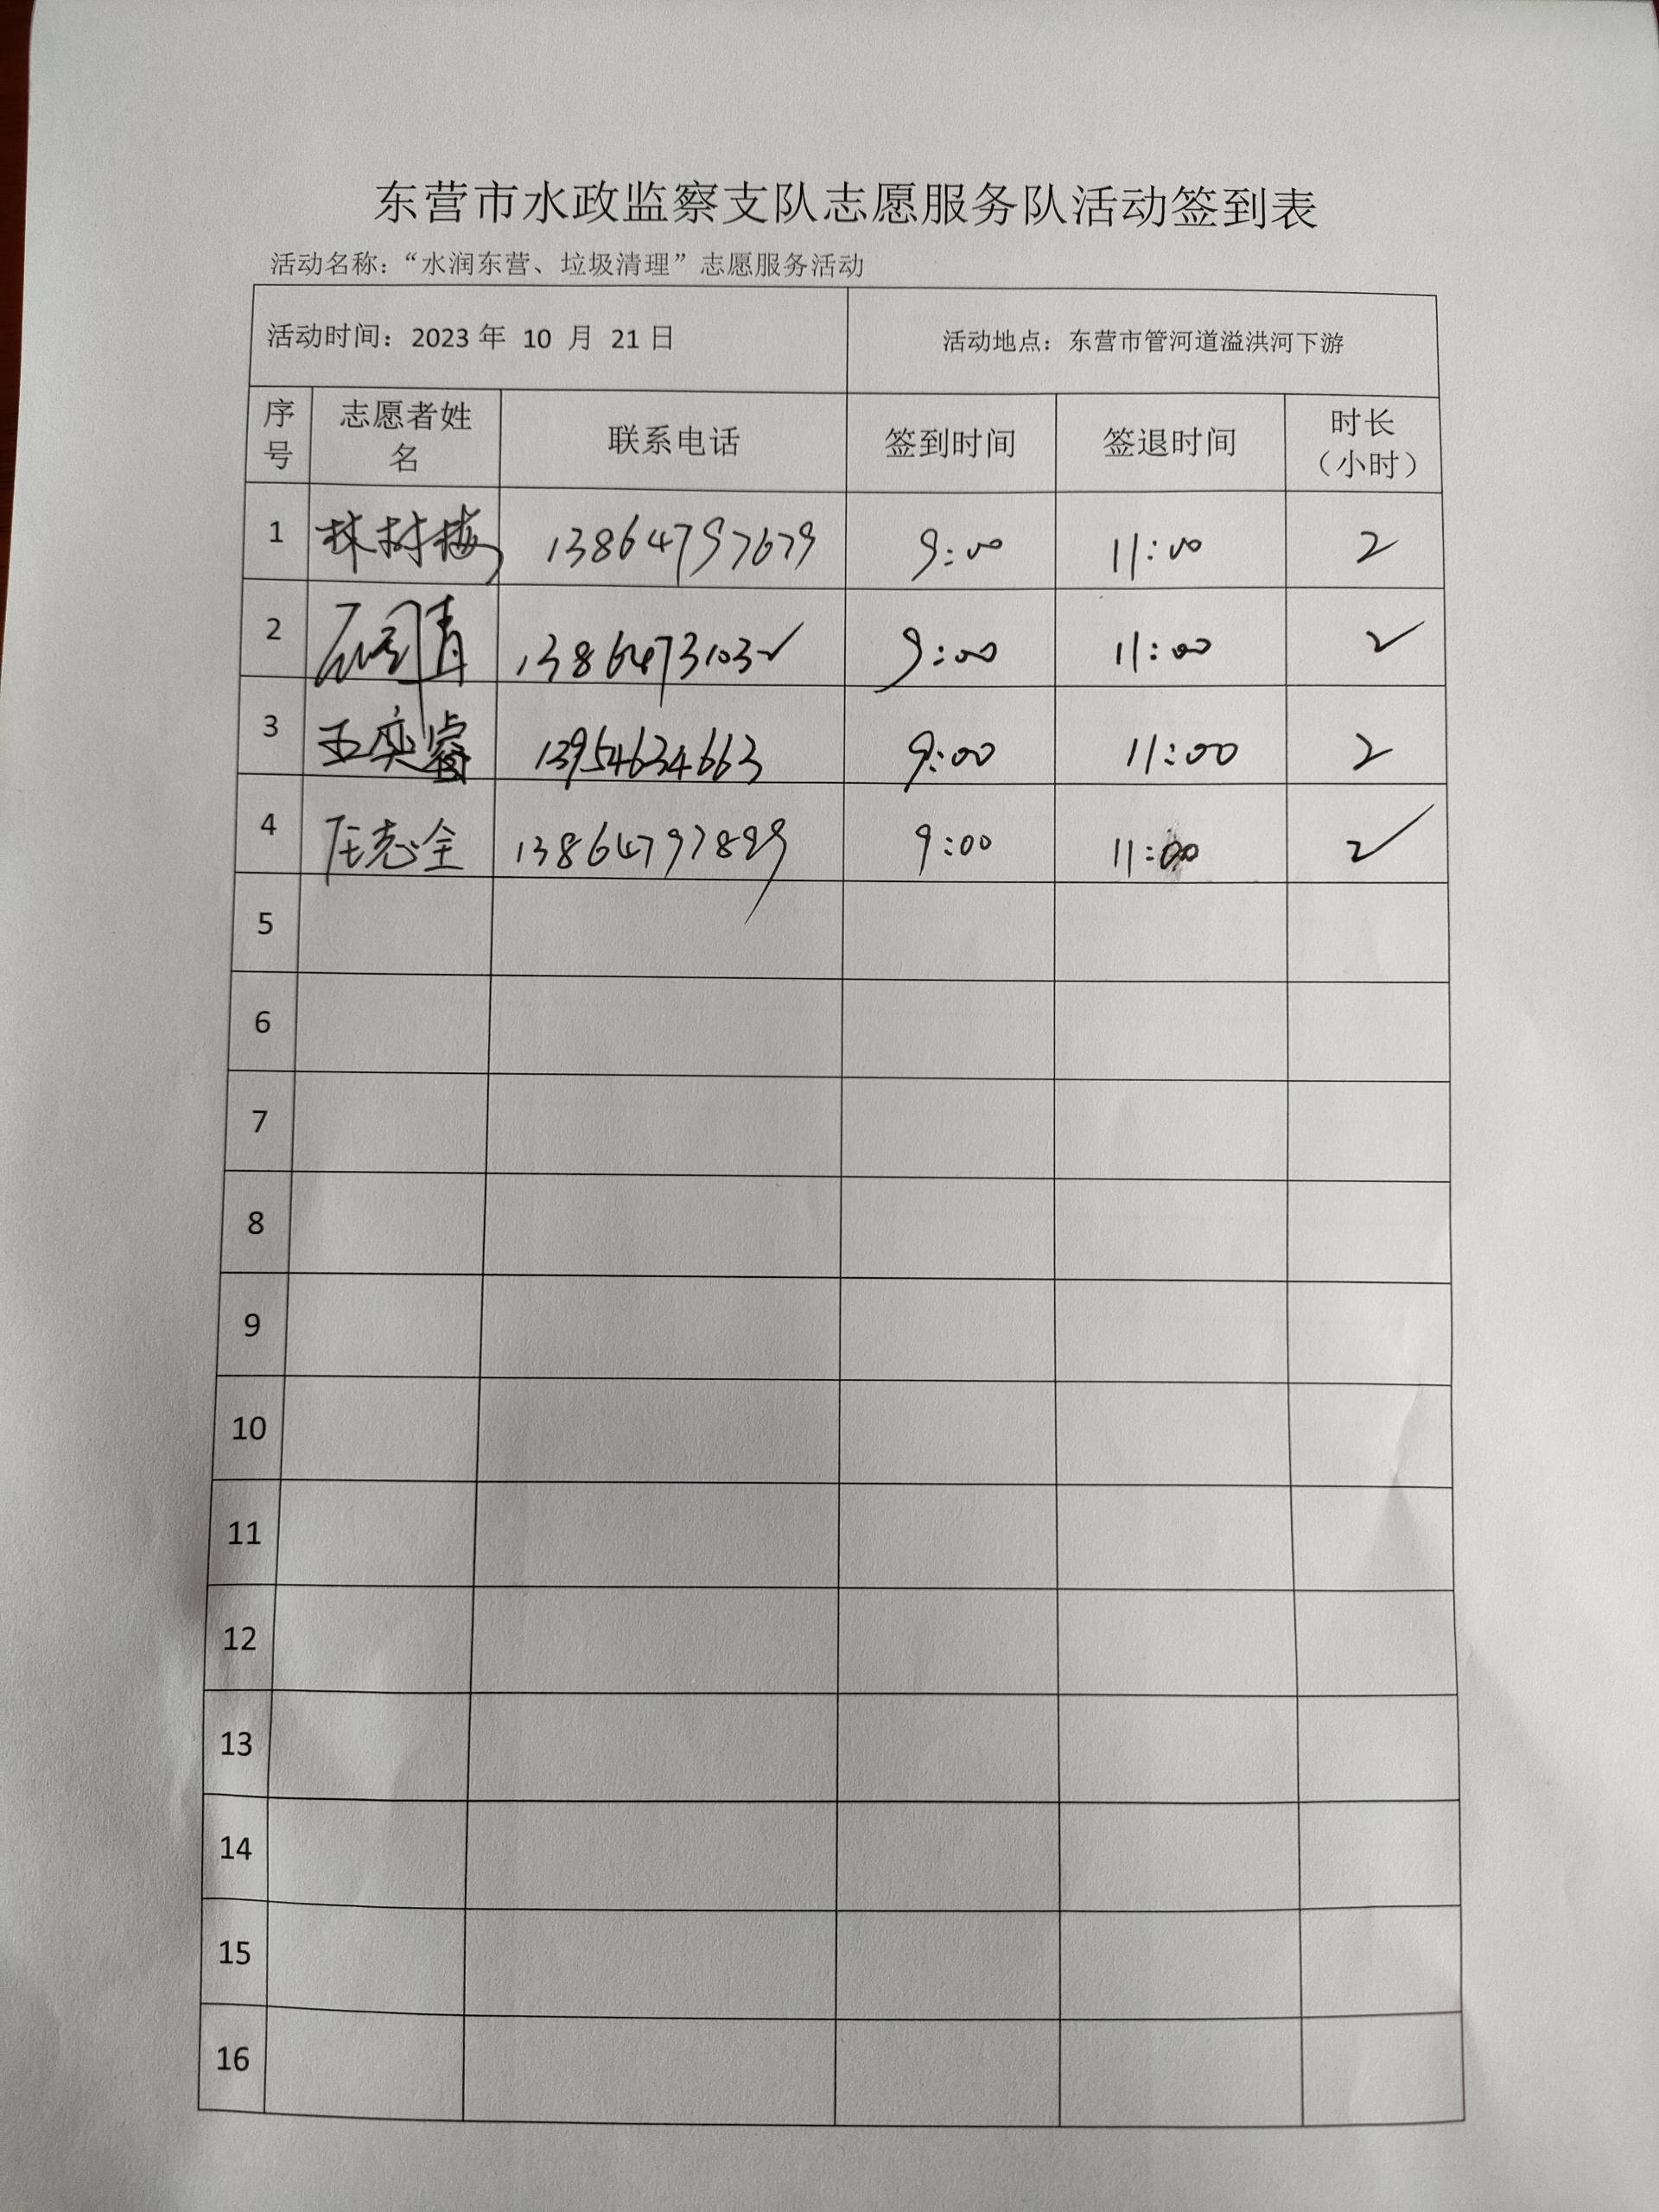 东营市水政监察支队志愿服务队活动签到表
活动名称：“水润东营、垃圾清理”志愿服务活动
活动时间：2023 年 10 月 21 日 活动地点：东营市管河道溢洪河下游
序号 志愿者姓名 联系电话 签到时间 签退时间 时长（小时）
1 林树梅 13864797679 9:00 11:00 2
2 13864731032 9:00 11:00 2
3 王奕睿 13954634663 9:00 11:00 2
4 庄志全 13864797899 9:00 11:00 2
5
6
7
8
9
10
11
12
13
14
15
16